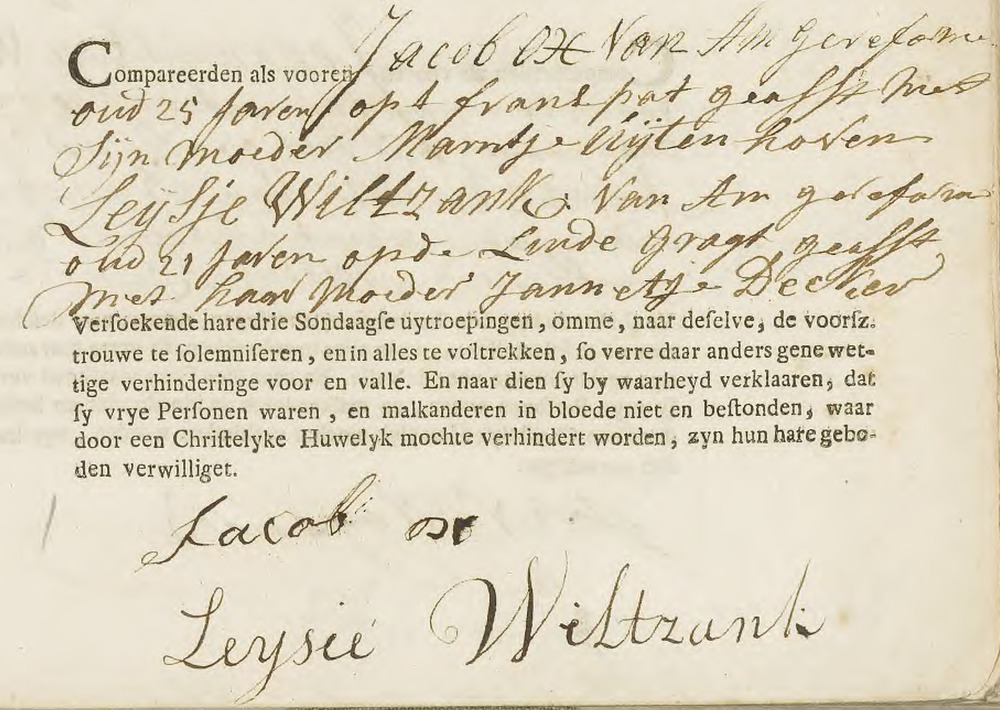 Compareerden als vooren Jacob Ox Van Am gereforme
oud 25 Jaren opt franspat geasst Met
Sijn Moeder Marritje Uijtenhoven
Leysje Wiltzank Van Am gereform
oud 21 Jaren opde Linde gragt geasst
Met haar Moeder Jannetje Decker
Verſoekende hare drie Sondaagſe uytroepingen, omme, naar deſelve, de voorſz.
trouwe te ſolemniſeren, en in alles te voltrekken, ſo verre daar anders gene wet-
tige verhinderinge voor en valle. En naar dien ſy by waarheyd verklaaren, dat
ſy vrye Perſonen waren, en malkanderen in bloede niet en beſtonden, waar
door een Chriſtelyke Huwelyk mochte verhindert worden, zyn hun hare gebo-
den verwilliget.
Jacob ox
Leysie Wiltzank